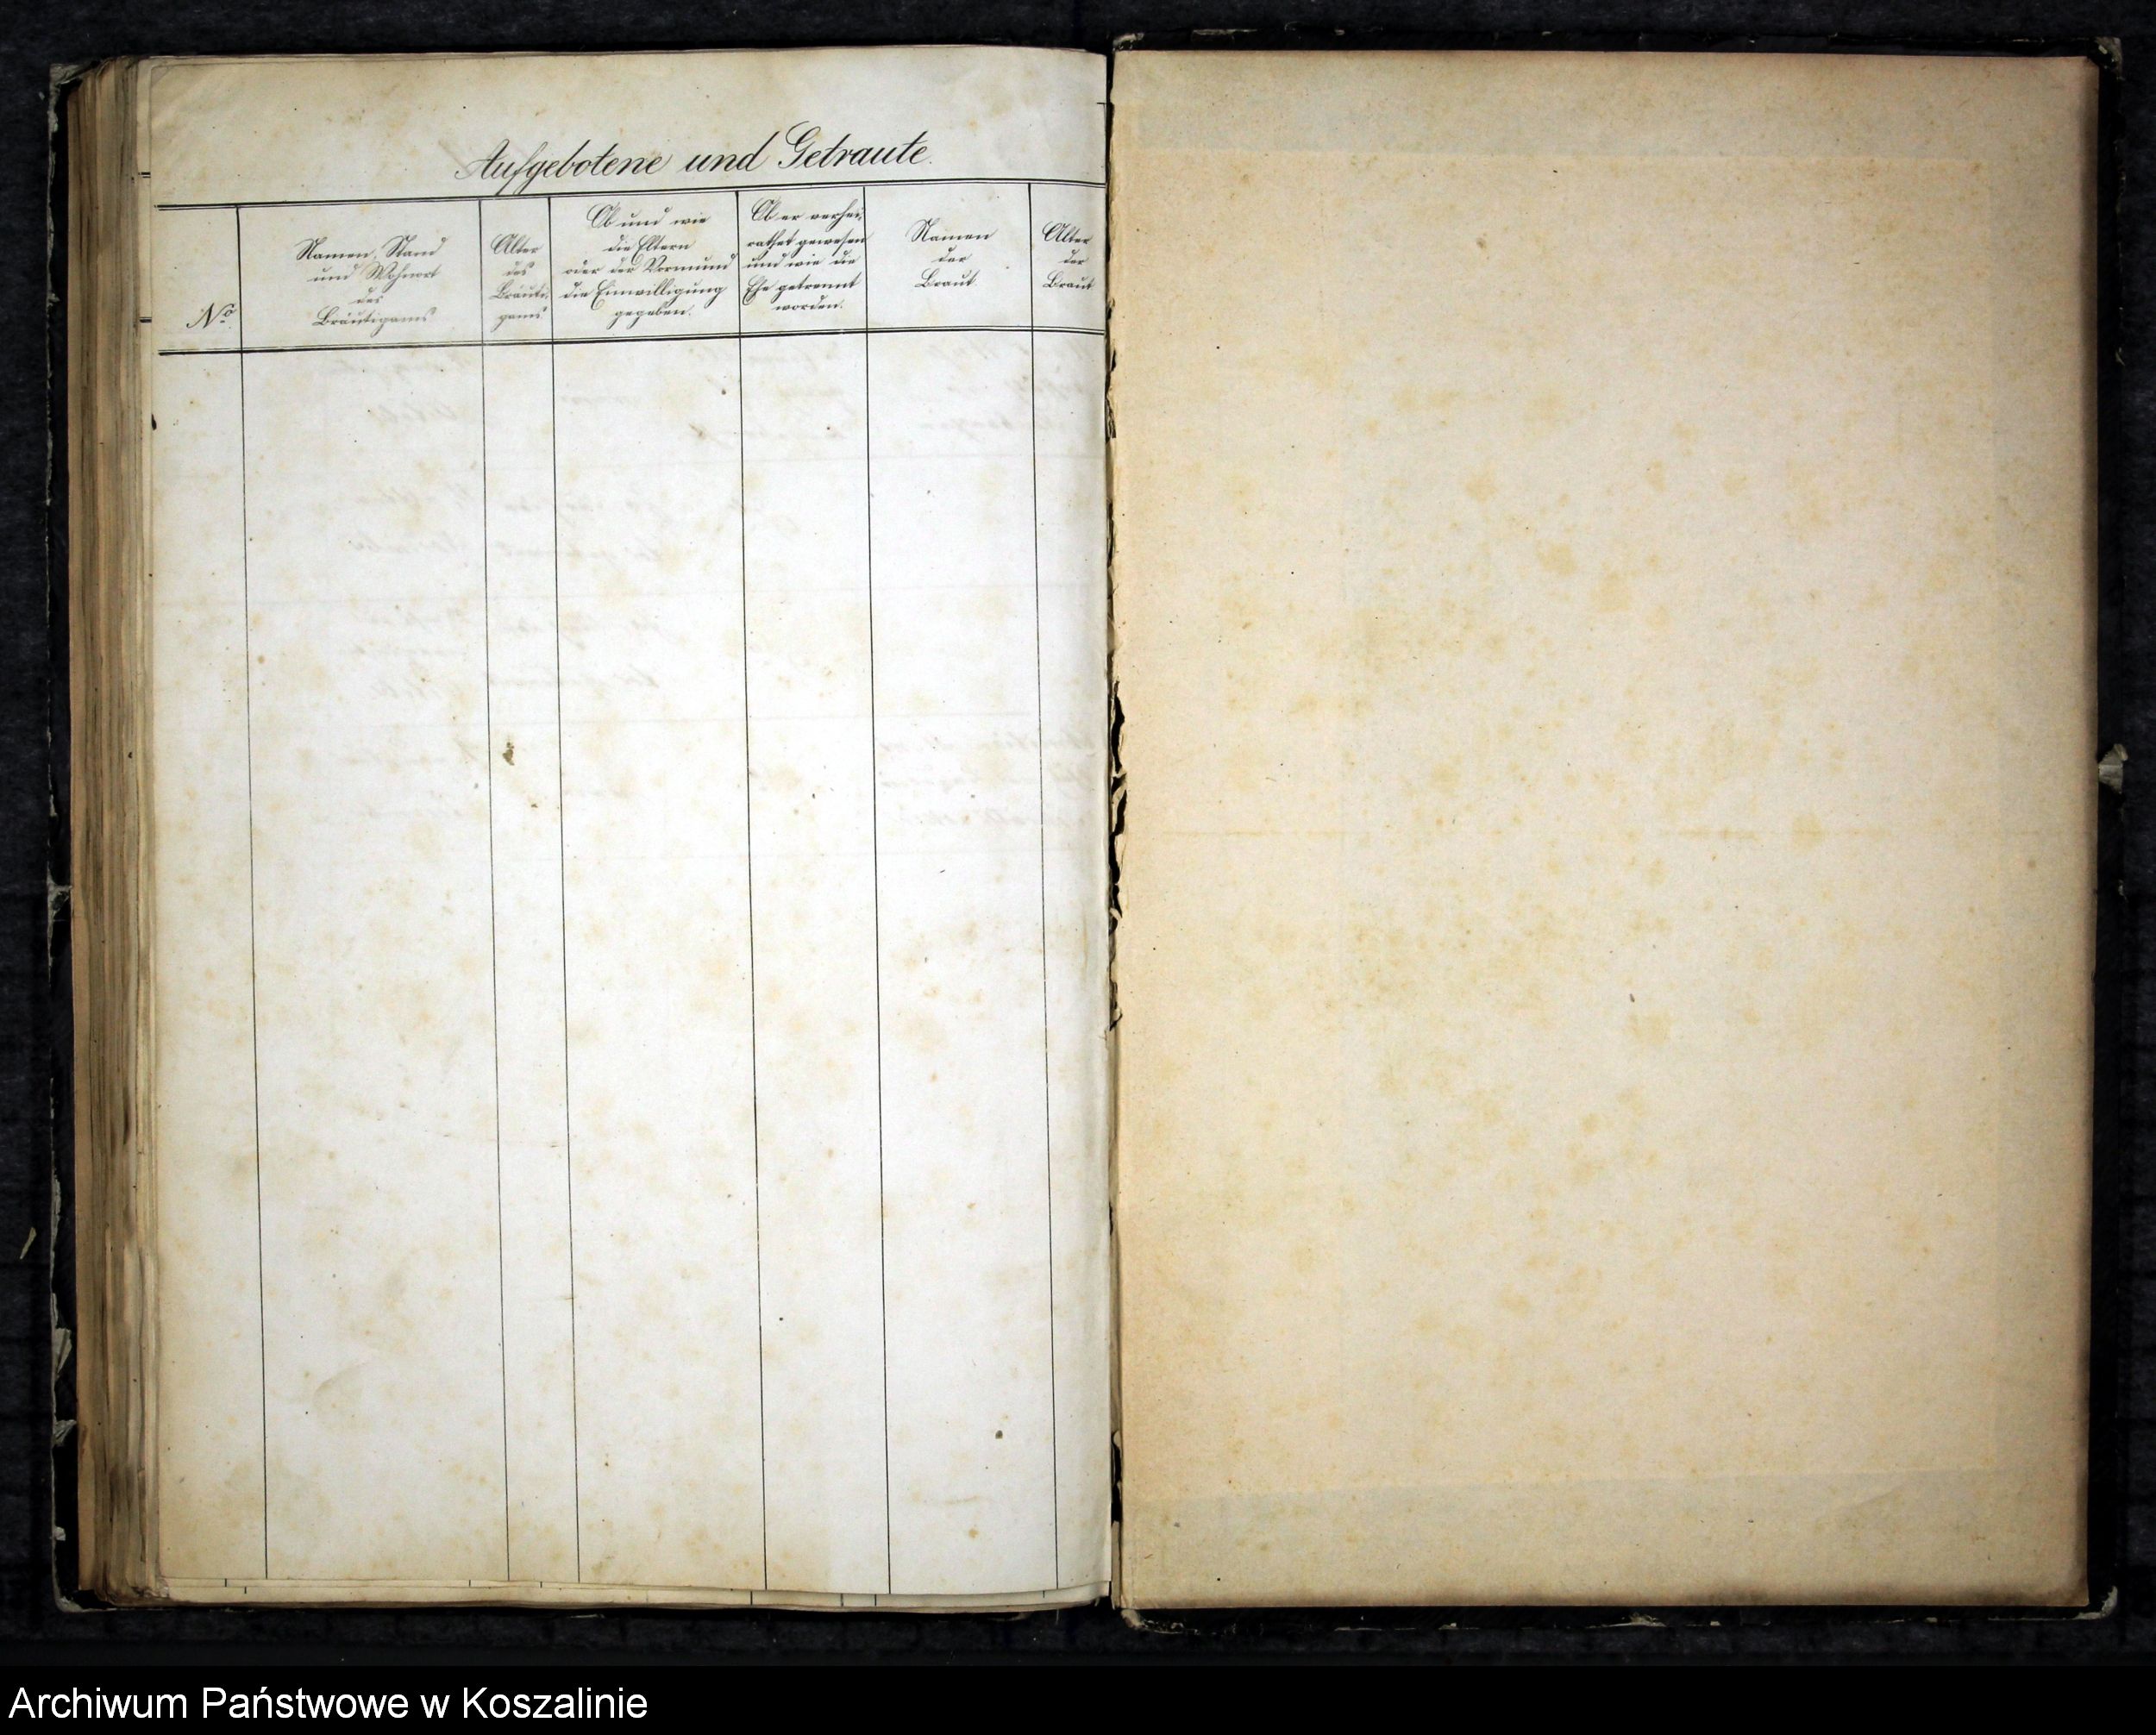 Aufgebotene und Getraute.
No.
Namen, Stand
und Wohnort
des
Bräutigams
Alter
des
Bräuti-
gams
Ob und wie
die Eltern
oder der Vormund
die Einwilligung
gegeben.
Ob er verhei-
rathet gewesen
und wie die
Ehe getrennt
worden.
Namen
der
Braut
Alter
der
Braut
Archiwum Państwowe w Koszalinie